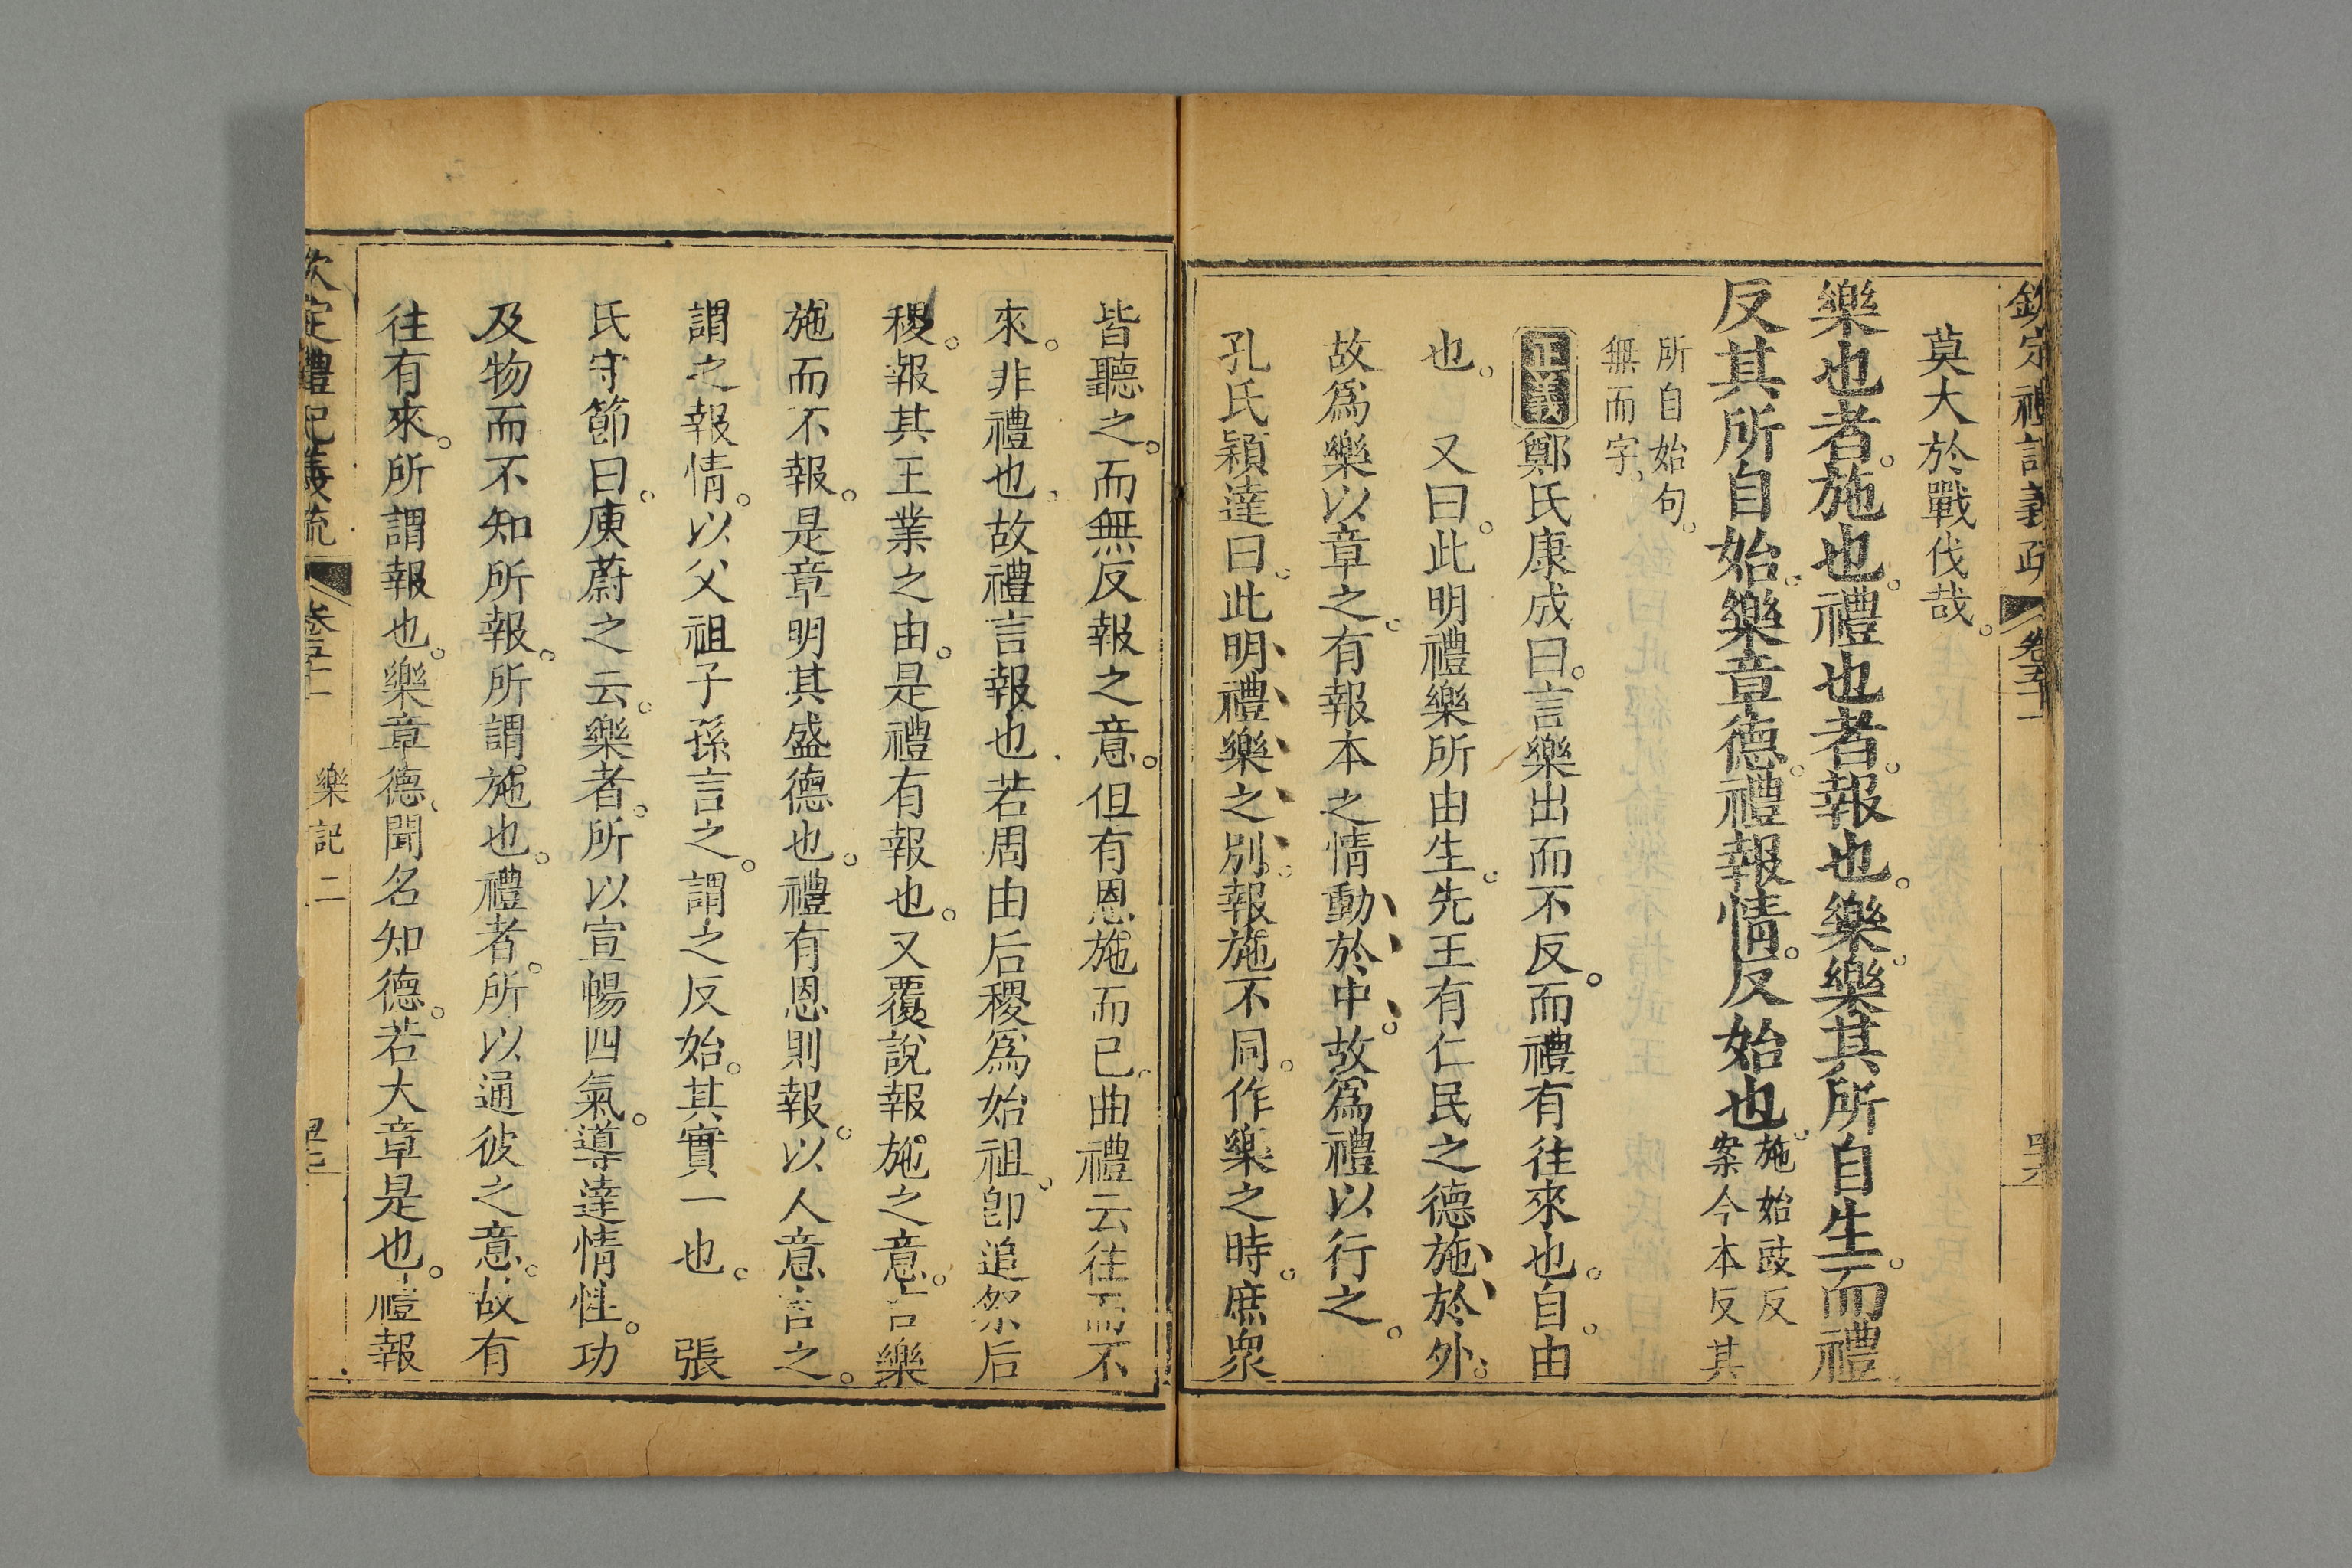 欽定禮記義疏 卷五十一
莫大於戰伐哉。
樂也者。施也。禮也者。報也。樂。樂其所自生。而禮
反其所自始。樂章德。禮報情。反始也。
施始豉反
案今本反其
所自始句。
無而字。
正義鄭氏康成曰。言樂出而不反。而禮有往來也。自。由
也。 又曰。此明禮樂所由生。先王有仁民之德施於外。
故爲樂以章之。有報本之情動於中。故爲禮以行之。
孔氏穎達曰。此明禮樂之別。報施不同。作樂之時。庶衆
皆聽之。而無反報之意。但有恩施而已。曲禮云往而不
來。非禮也。故禮言報也。若周由后稷爲始祖。卽追祭后
稷。報其王業之由。是禮有報也。又覆說報施之意。言樂
施而不報。是章明其盛德也。禮有恩則報。以人意言之。
謂之報情。以父祖子孫言之。謂之反始。其實一也。 張
氏守節曰。庾蔚之云。樂者。所以宣暢四氣。導達情性。功
及物而不知所報。所謂施也。禮者。所以通彼之意。故有
往有來。所謂報也。樂章德。聞名知德。若大章是也。禮報
欽定禮記義疏 卷五十一 樂記二